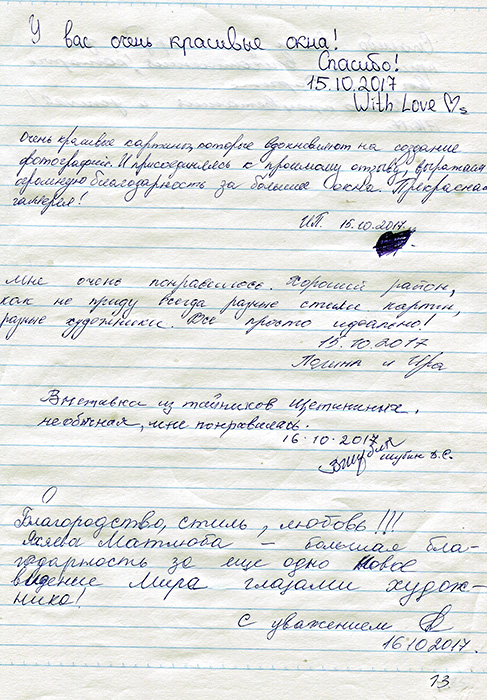 У вас очень красивые окна!
Спасибо!
15.10.2017
With Love
очень красивые картины, которые вдохновляют на создание
фотографий. И присоединяюсь к прошлому отзыву, выражаю
огромную благодарность за большие окна. Прекрасная
галерея!
И.П. 15.10.2017.
Мне очень понравилось. Хороший район,
как не приду всегда разные стили картин,
разные художники. Всё просто идеально!
15.10.2017
Полина и Ира
Выставка из тайников Щетининых.
необычная, мне понравилась.
16.10.2017
Шубин В.С.
Благородство, стиль, любовь!!!
Матлюба – большая бла-
годарность за еще одно новое
видение Мира глазами худож-
ника!
С уважением
16.10.2017.
13